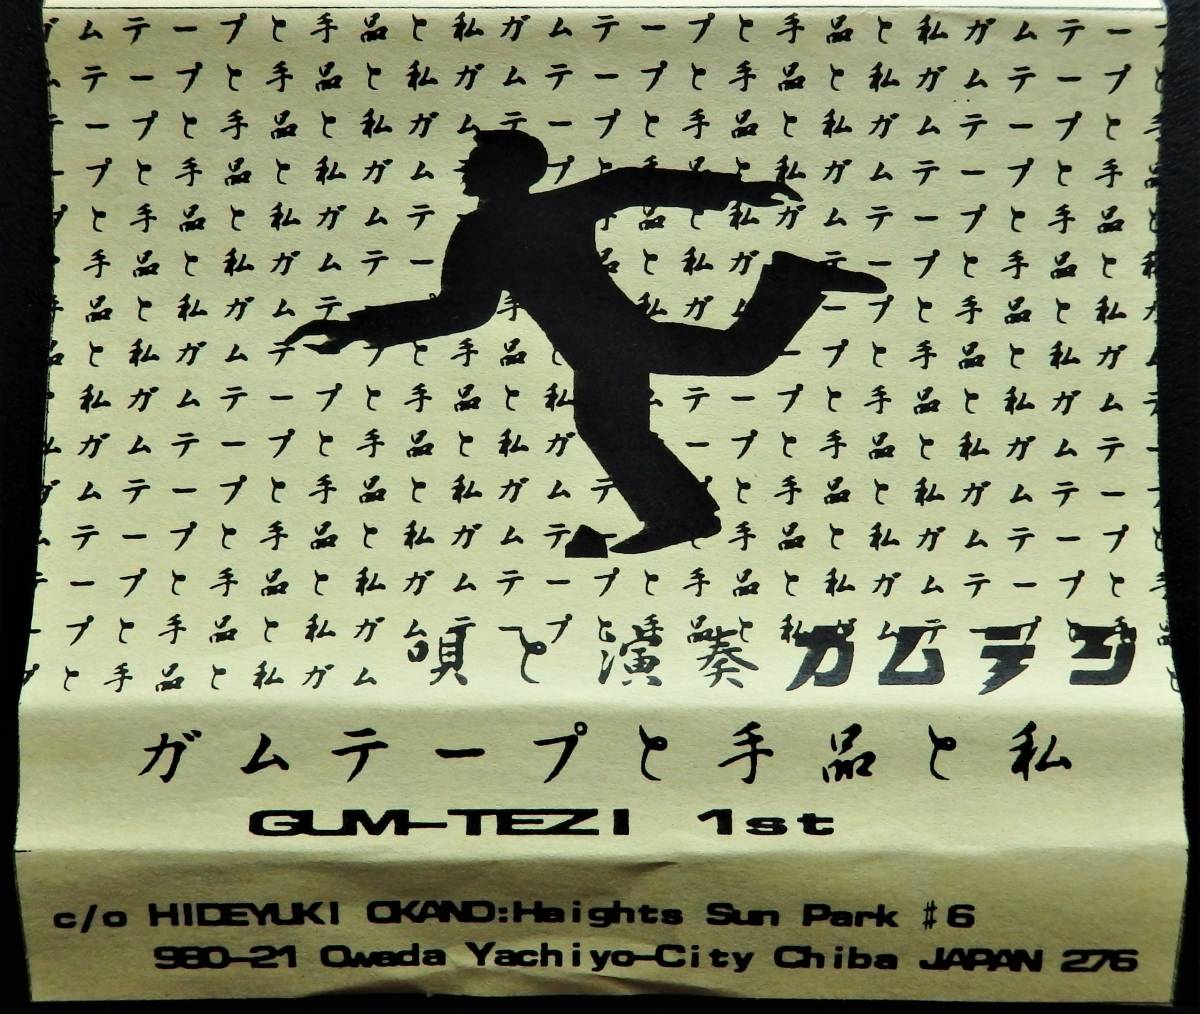 ムテープと手品と私ガムテープと手品と私ガムテープ
ムテープと手品と私ガムテープと手品と私ガムテープと
テープと手品と私ガムテープと手品と私ガムテープと手
ープと手品と私ガム プと手品と私ガムテープと手品
プと手品と私ガムテ 手品と私ガムテープと手品と
と手品と私ガムテー 品と私ガ テープと手品と私
手品と私ガムテ 手 私ガム ープと手品と私ガ
品と私ガムテ プと手品と ープと手品と私ガム
と私ガムテープと手品と私 ムテープと手品と私ガムテ
私ガムテープと手品と私ガ ープと手品と私ガムテー
ガムテープと手品と私ガムテ と手品と私ガムテー
ムテープと手品と私ガムテ と手品と私ガムテープと
テープと手品と私ガムテープと手品と私ガムテープと手
ープと手品と私ガムテープと手品と私ガムテープと手品
プと手品と私ガム
唄と演奏 ガムテジ
ガムテープと手品と私
GUM-TEZI 1st
c/o HIDEYUKI OKANO:Haights Sun Park #6
980-21 Owada Yachiyo-City Chiba JAPAN 276